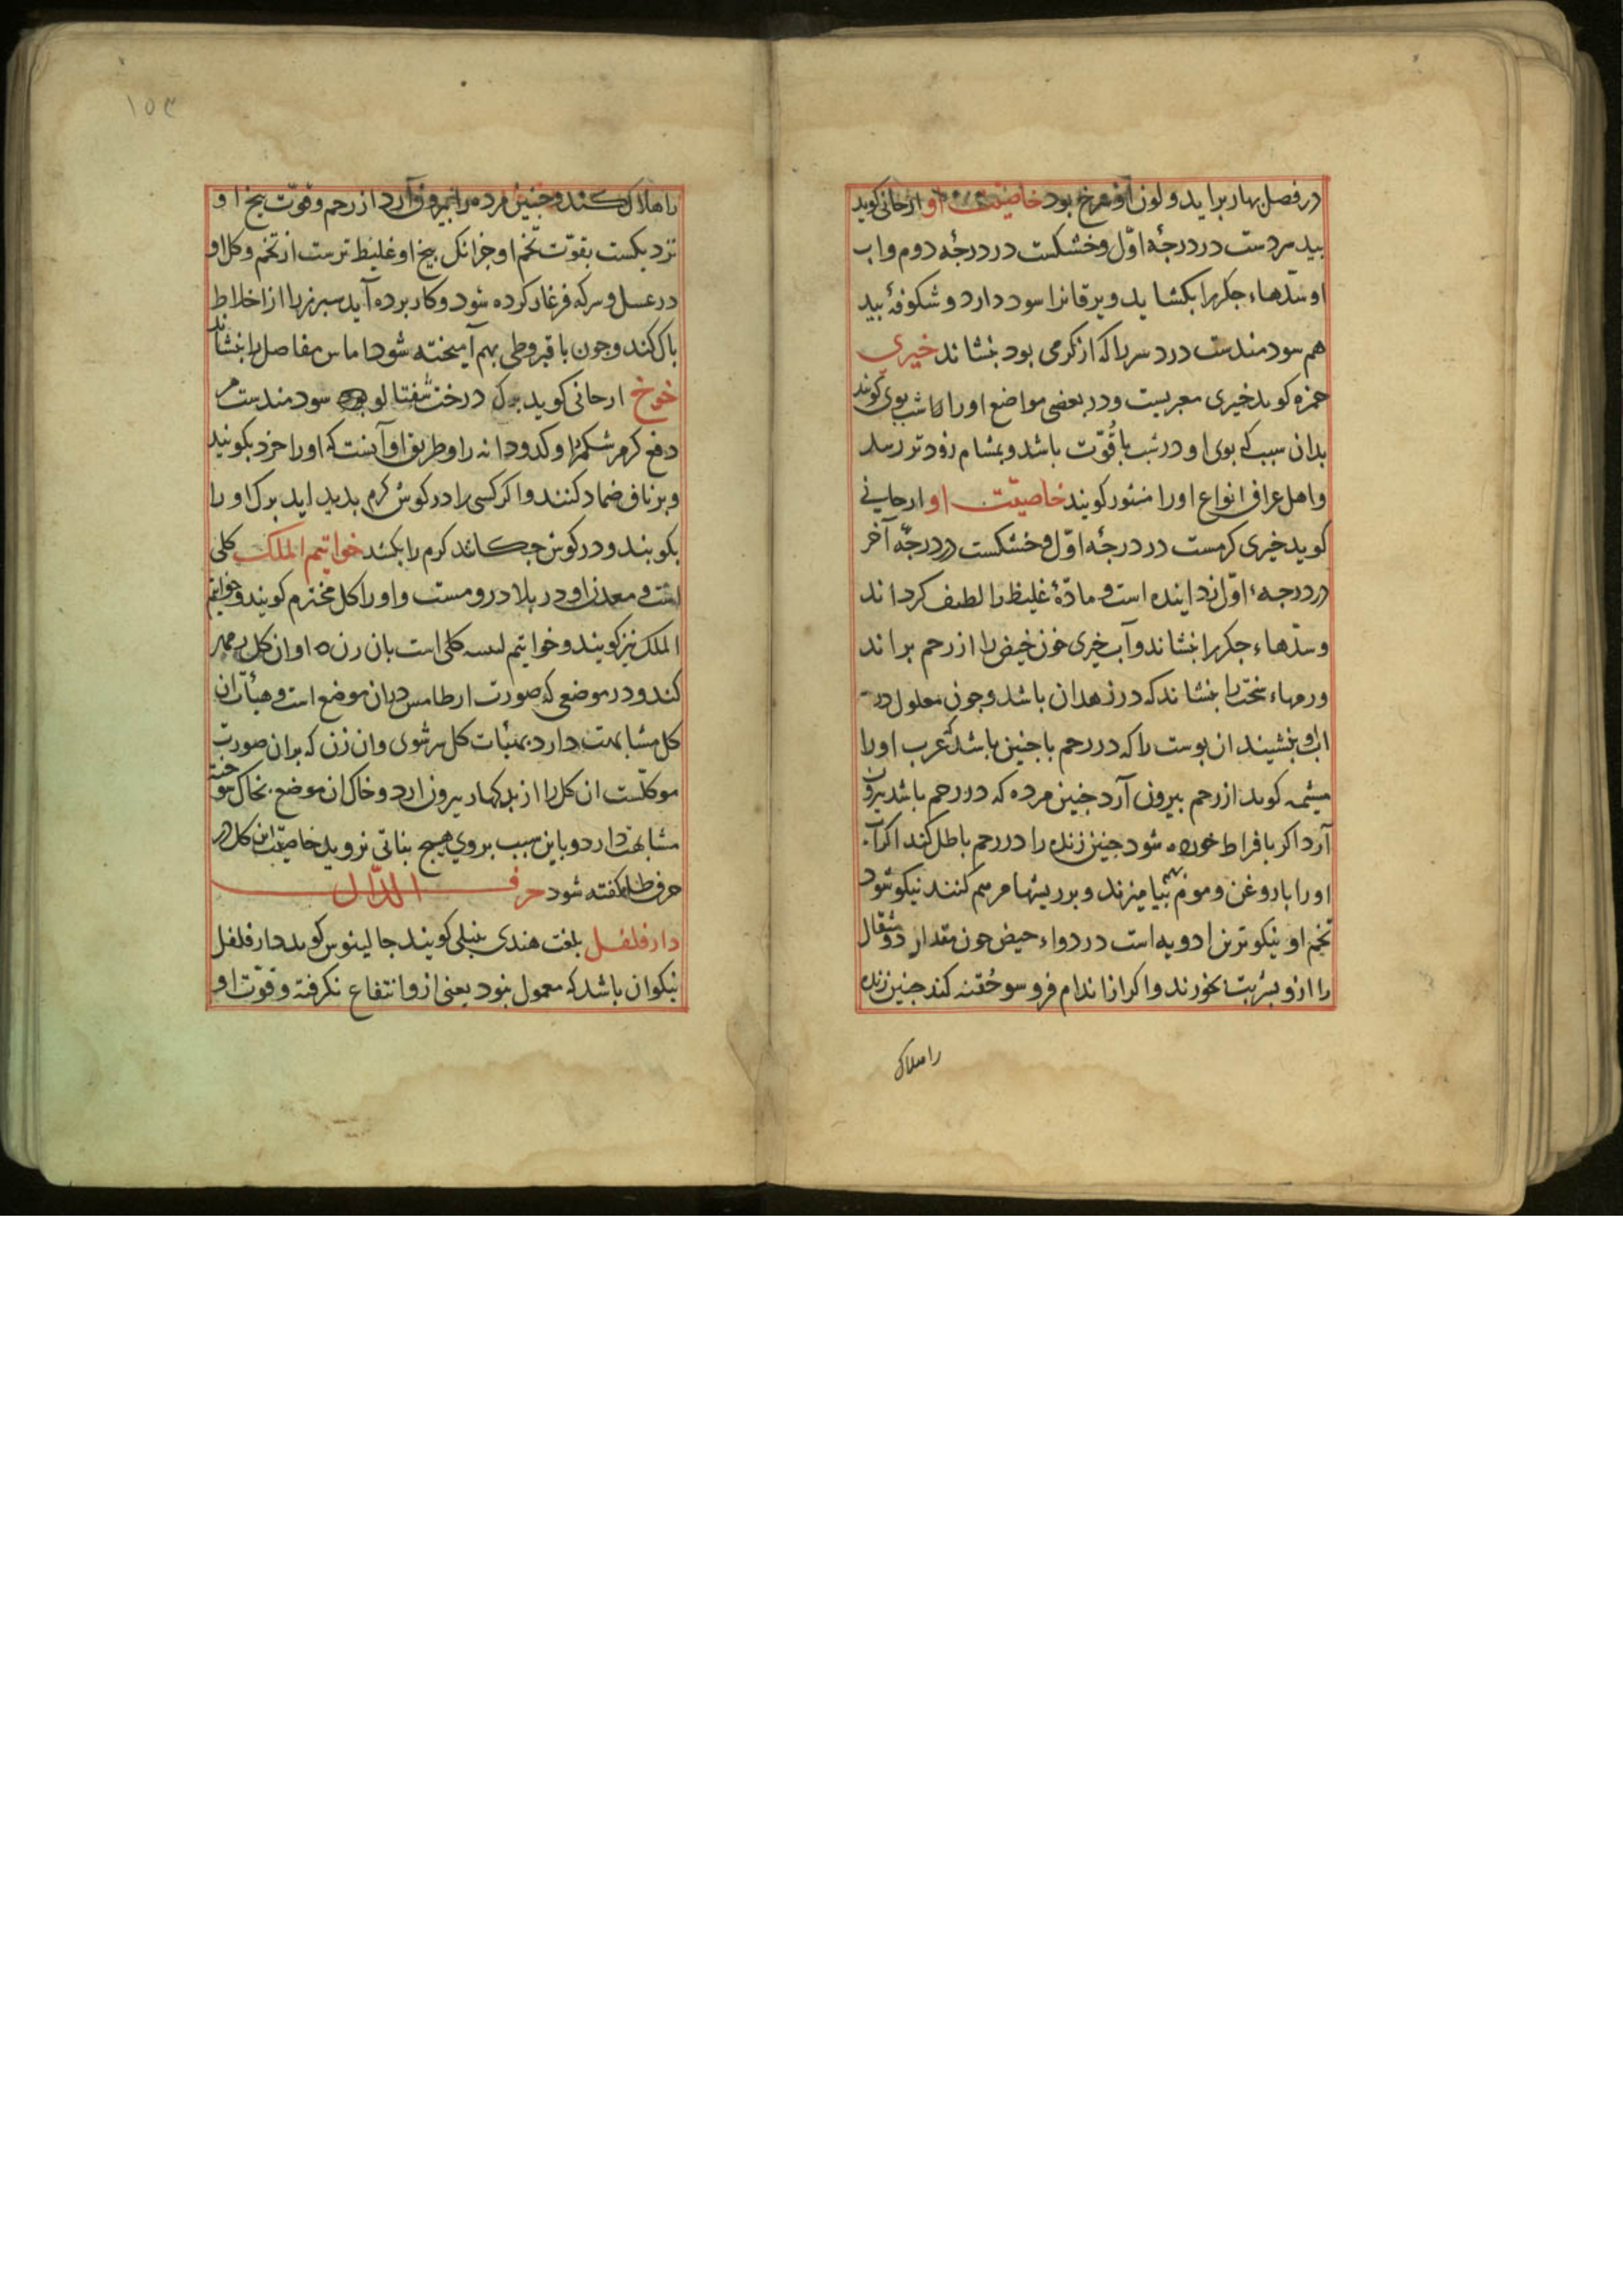 در فصل بهار برآید و لون او سرخ بود خاصیت او ارجانی کوید
بید سردست در درجهٔ اوّل و خشکست در درجهٔ دوم و اب
او سدّهاء جکر را بکشاید و یرقانرا سود دارد و شکوفهٔ بید
هم سودمندست درد سر را که از کرمی بود بنشاند خیری
حمزه کوید خیری معربست و در بعضی مواضع او را شب بوی کویند
بدان سبب که بوی او در شب با قُوّت باشد و بمشام زودتر رسد
و اهل عراق انواع او را منثور کویند خاصیّت او ارجانی
کوید خیری کرمست در درجهٔ اوّل و خشکست در درجهٔ آخر
در درجهء اوّل زداینده است و مادّهٔ غلیظ را لطیف کرداند
و سدّهاء جکر را بنشاند و آب خیری خون حیض را از رحم براند
ورمهاء سخت را بنشاند که در زهدان باشد و چون معلول در
اب او بنشیند ان پوست را که در رحم با جنین باشد که عرب او را
مشیمه کوید از رحم بیرون آرد جنین مرده که در رحم باشد بیرون
آرد اکر بافراط خورده شود جنین زنده را در رحم باطل کند اکر آب
او را با روغن و موم بهم بیامیزند و بر ریشها مرهم کنند نیکو شود
تخم او نیکوترین ادویه است در دواء حیض چون مقدار دو مثقال
را ازو بشربت بخورند و اکر از اندام فرو سو حُقنه کند جنین زنده
را هلاک
۱۵۳
را هلاک کند و جنین مرده را بیرون آرد از رحم و قوّت بیخ او
نزدیکست بقوّت تخم او جز انک بیخ او غلیظ ترست از تخم و کل او
در عسل و سرکه فرغار کرده شود و کار برده آید سپرز را از اخلاط
پاک کند و چون با قیروطی بهم آمیخته شود اماس مفاصل را بنشاند
خوخ ارجانی کوید برک درخت شفتالو سودمندست مر
دفع کرم شکم را و کدودانه را و طریق او آنست که او را خرد بکوبند
و بر ناف ضماد کنند و اکر کسی را در کوش کرم پدید اید برک او را
بکوبند و در کوش چکانند کرم را بکشد خواتیم الملک کلی
است و معدن او در بلاد رومست و او را کل مختوم کویند و خواتیم
الملک نیز کویند و خواتیم کلی است بان زن او ان کل بر مهر
کند و در موضعی که صورت ارطامس دران موضع است و هیأت ان
کل مشابهت دارد کل سرشوی و ان زن که بران صورت
موکلست ان کل را از بیرون ارد و خاک ان موضع بخاک سوخته
مشابهت دارد و باین سبب بروی هیچ نباتی نروید خاصیّت این کل در
حرف طا کفته شود حرف الدّال
دارفلفل بلغت هندی پیپلی کویند جالینوس کوید دارفلفل
نیکو ان باشد که معمول نبود یعنی ازو انتفاع نکرفته و قوّت او